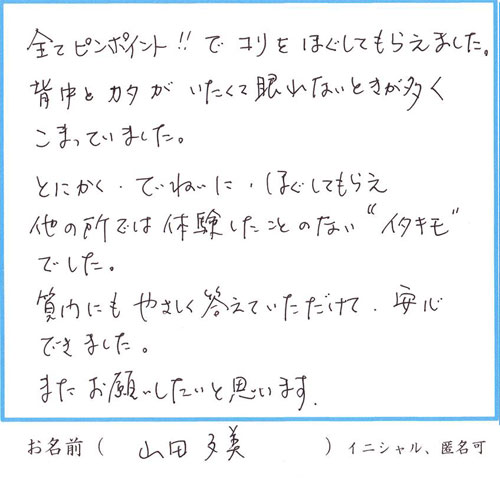 全てピンポイント!!でコリをほぐしてもらえました。
背中とカタがいたくて眠れないときが多く
こまっていました。
とにかく、ていねいに、ほぐしてもらえ
他の所では体験したことのない“イタキモ”
でした。
質内にもやさしく答えていただけて、安心
できました。
またお願いしたいと思います。
お名前( 山田多美 )イニシャル、匿名可